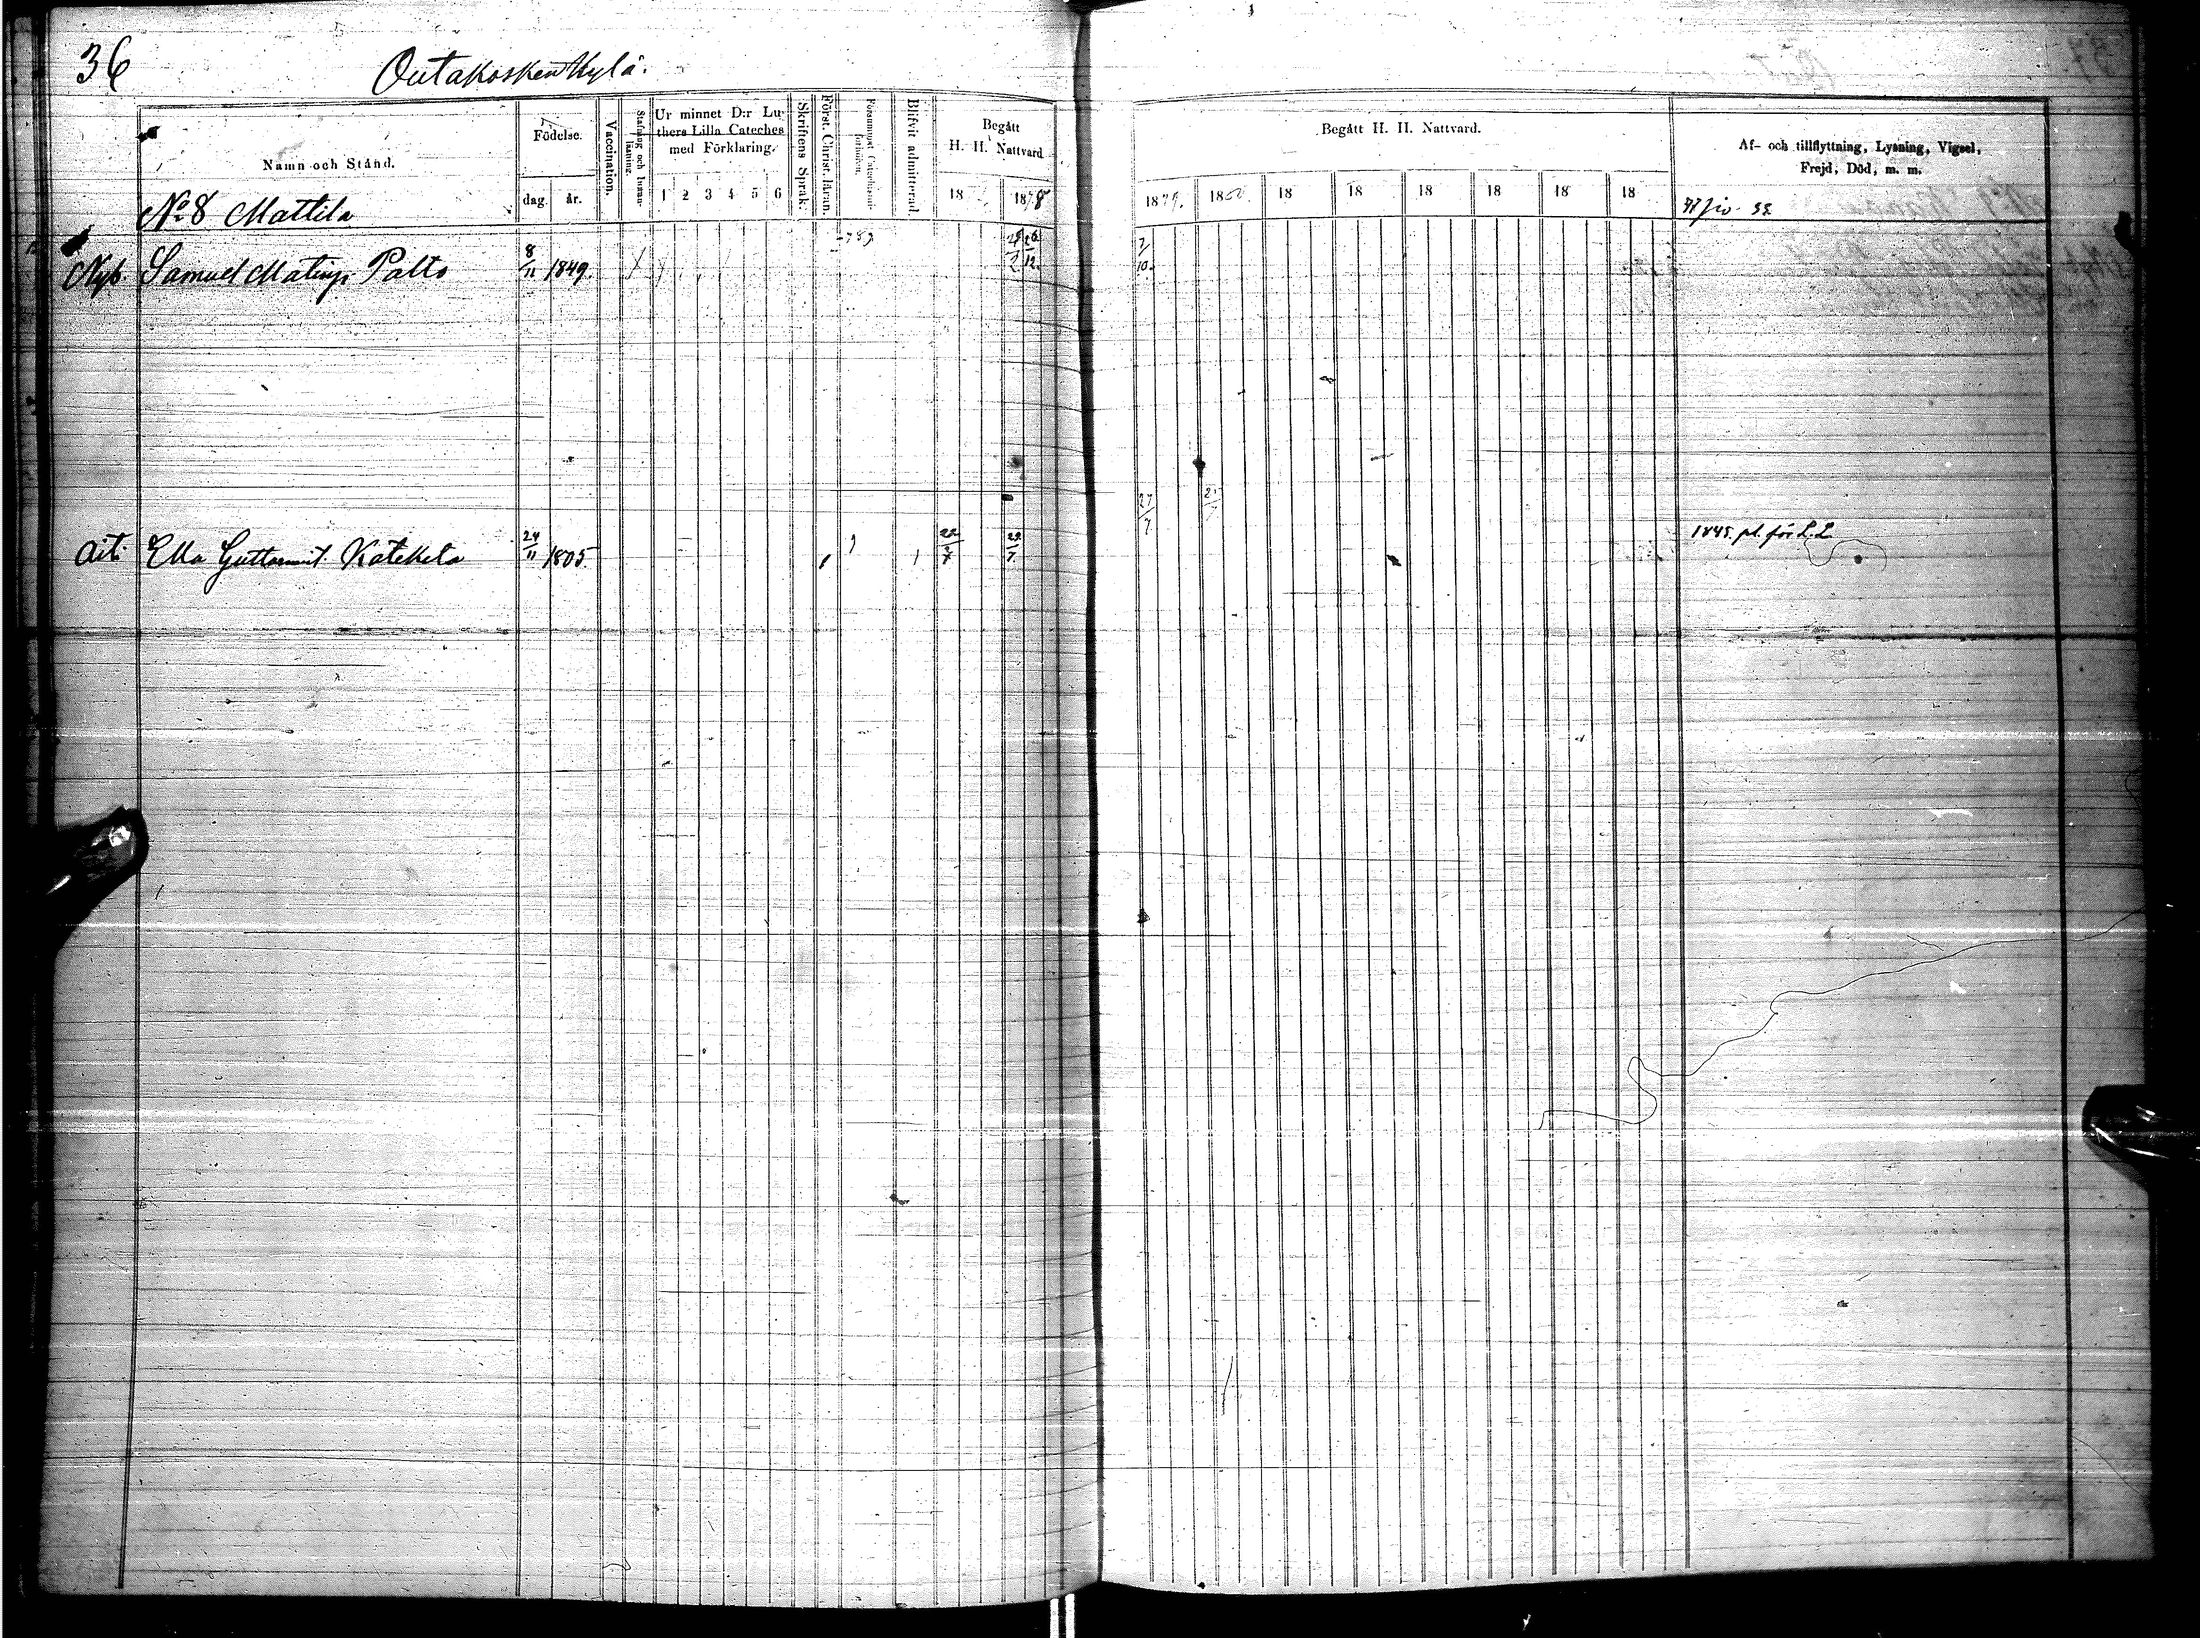 36
Outakosken Kylä.
Namn och Stånd.
Födelse.
dag. år.
Vaccination.
Stafning och Innanläsning.
Ur minnet D:r Luthers Lilla Cateches med Förklaring.
1 2 3 4 5 6
Skriftens Språk.
Först. Christ. läran.
Försummat Catechismiförhören.
Blifvit admitterad.
Begått
H. H. Nattvard
18 1878
Begått H. H. Nattvard.
1879. 1880. 18 18 18 18 18 18
Af- och tillflyttning, Lysning, Vigsel,
Frejd, Död, m. m.
No 8 Mattila
Nyb. Samuel Matinp. Palto 8/11 1849. 7/10.
Äiti Ella Guttormint. Kateketa 24/11 1805 22/7 22/7 27/7
1845. pl. för L. L.